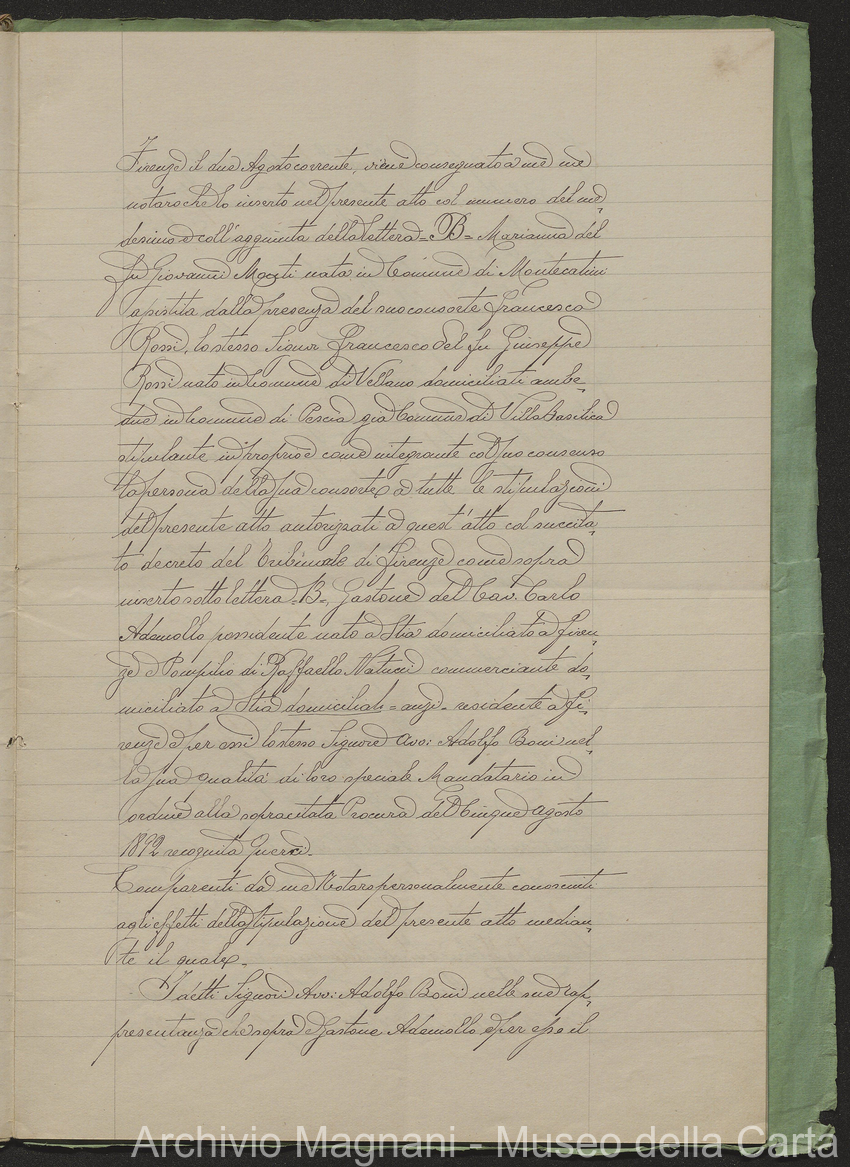 Firenze il due Agosto corrente, viene consegnato a me me
notaro che lo inserto nel presente atto col numero del me-
desimo e coll'aggiunta della lettera = B = Marianna del
fu Giovanni Monti nata in Comune di Montecatini
assistita dalla presenza del suo consorte Francesco
Rossi, lo stesso Signor Francesco del fu Giuseppe
Rossi nato in Comune di Vellano domiciliati ambe-
due in Comune di Pescia già Comune di Villa Basilica
stipulante in proprio e come integrante col suo consenso
la persona della sua consorte a tutte le stipulazioni
del presente atto autorizzati a quest'atto col succita-
to decreto del Tribunale di Firenze come sopra
inserto sotto lettera = B =, Gastone del Cav. Carlo
Ademollo possidente nato a Stia domiciliato a Firen-
ze e Pompilio di Raffaello Natucci commerciante do-
miciliato a Stia domiciliati = anzi = residente a Fi-
renze e per essi lo stesso Signore Avv: Adolfo Boni nel-
la sua qualità di loro speciale Mandatario in
ordine alla sopracitata Procura del Cinque Agosto
1892 recognita Querci =
Comparenti da me Notaro personalmente conosciuti
agli effetti della stipulazione del presente atto median-
te il quale =
I detti Signori Avv: Adolfo Boni nelle sue rap-
presentanze che sopra e Gastone Ademollo e per esso il
Archivio Magnani - Museo della Carta